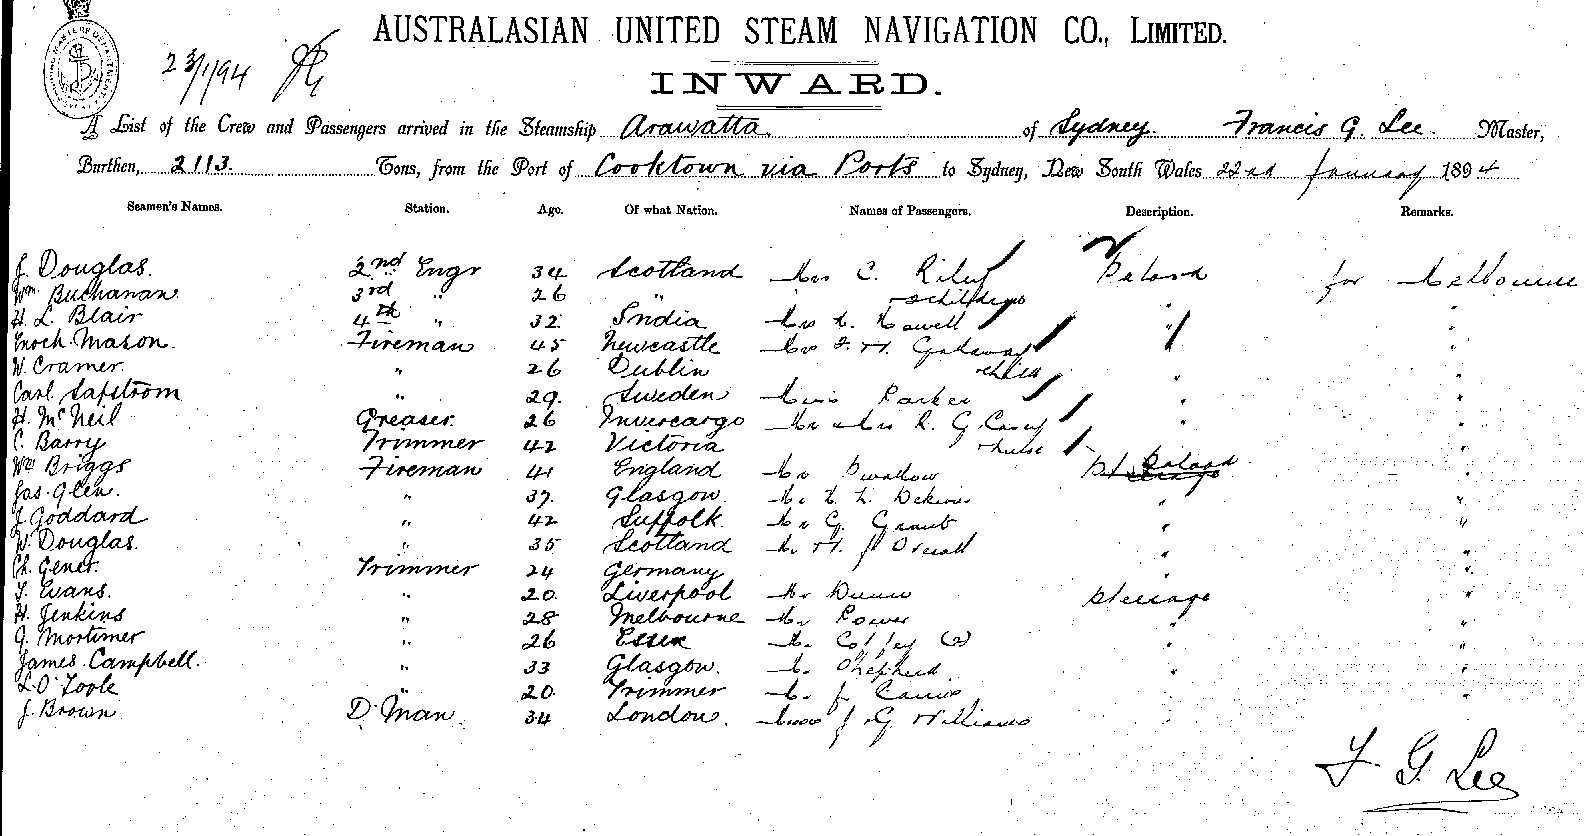 23/1/94
AUSTRALASIAN UNITED STEAM NAVIGATION CO., LIMITED.
INWARD.
A List of the Crew and Passengers arrived in the Steamship Arawatta of Sydney. Francis G. Lee. Master,
Burthen, 2113. Tons, from the Port of Cooktown via Ports to Sydney, New South Wales 22nd January 1894
Seamen's Names. Station. Age. Of what Nation. Names of Passengers. Description. Remarks.
J. Douglas. 2nd Engr 34 Scotland Mrs C. Riley Saloon for Melbourne
Wm. Buchanan 3rd " 26 " " "
H. L. Blair 4th " 32 India " "
Enoch Mason. Fireman 45 Newcastle Mrs F. H. "
W. Cramer. " 26 Dublin & child " "
Carl Safstrom " 29. Sweden Miss Parker "
H. McNeil Greaser. 26 Invercargo Mr & Mrs R. G. Casey " "
C. Barry Trimmer 42 Victoria & nurse "
Wm Briggs Fireman 41 England Mr Swallow Saloon "
Jas. Glen. " 37. Glasgow. " "
J Goddard " 42 Suffolk. Mr G. Grant " "
W. Douglas. " 35 Scotland Mr H. J " "
Ch. Gener. Trimmer 24 Germany "
T. Evans. " 20. Liverpool Mr Dunn Steerage "
H. Jenkins " 28 Melbourne Mr Power " "
G. Mortimer " 26 Essex Mr Coffey (2) " "
James Campbell. " 33 Glasgow. Mr Shepherd " "
L. O'Toole " 20. Trimmer Mr J. "
J. Brown D. Man. 34 London. J G Williams
F. G. Lee